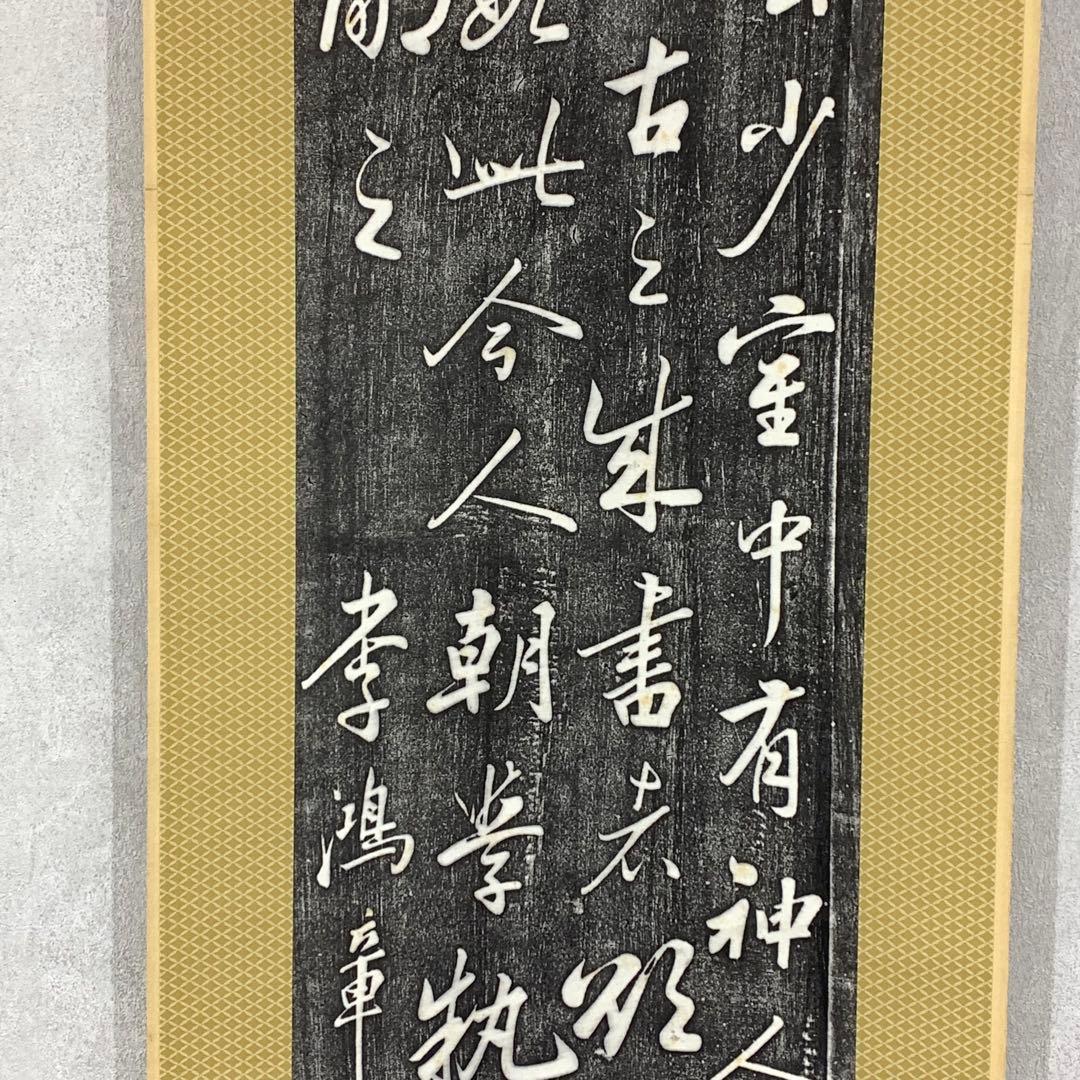 少室中有神人
古之成書者欲
此今人朝學執
之李鴻章